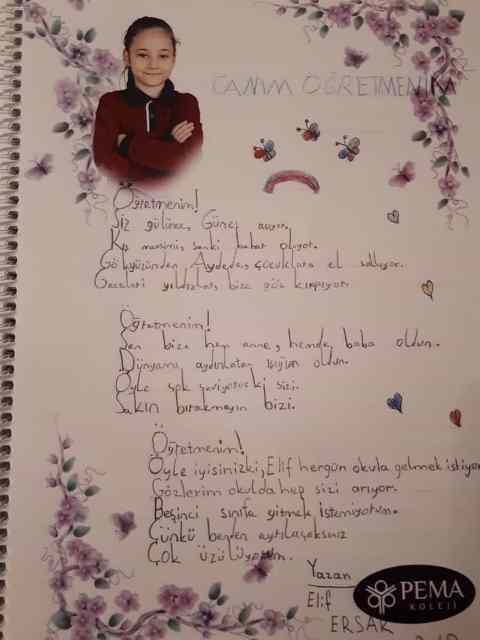 CANIM ÖĞRETMENİM
Öğretmenim!
Siz gülünce, Güneş açıyor.
Kış mevsimi, sanki bahar oluyor.
Gökyüzünden Aydede, çocuklara el sallıyor.
Geceleri yıldızlar, bize göz kırpıyor.
Öğretmenim!
Sen bize hem anne, hemde baba oldun.
Dünyamı aydınlatan ışığım oldun.
Öyle çok seviyoruz ki sizi.
Sakın bırakmayın bizi.
Öğretmenim!
Öyle iyisinizki, Elif hergün okula gelmek istiyor
Gözlerim okulda hep sizi arıyor.
Beşinci sınıfa gitmek istemiyorum.
Çünkü benden ayrılacaksınız
Çok üzülüyorum.
Yazan
Elif
ERSAK
PEMA
KOLEJİ